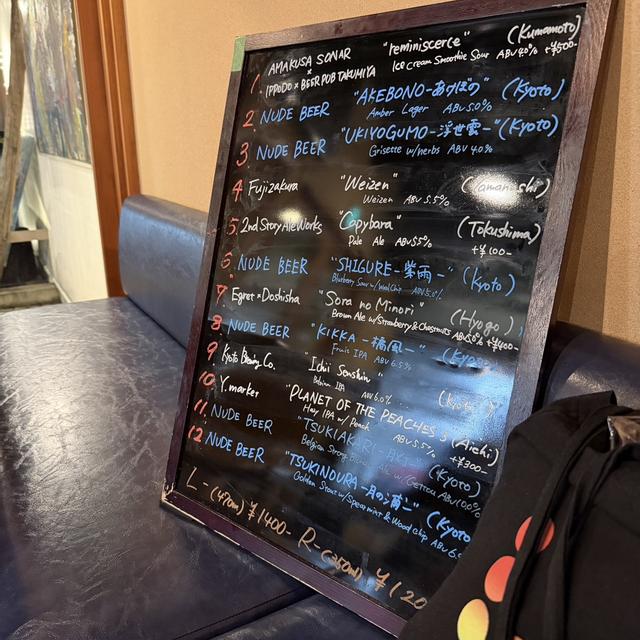 1. AMAKUSA SONAR × IPPODO × BEER PUB TAKUMIYA "reminiscerce" (Kumamoto)
Ice Cream Smoothie Sour ABV 4.0% +¥500-
2. NUDE BEER "AKEBONO-あけぼの" (Kyoto)
Amber Lager ABV 5.0%
3. NUDE BEER "UKIYOGUMO-浮世雲-" (Kyoto)
Grisette w/herbs ABV 4.0%
4 Fujizakura "Weizen" (Yamanashi)
Weizen ABV 5.5%
5. 2nd Story Ale Works "Capybara" (Tokushima)
Pale Ale ABV 5.5% +¥100-
6. NUDE BEER "SHIGURE-紫雨-" (Kyoto)
Bluberry Sour w/ Wood Chip ABV 5.0%
7 Egret × Doshisha "Sora no Minori" (Hyogo)
Brown Ale w/Strawberry & Chestnuts +¥400-
8 NUDE BEER "KIKKA-橘風-"
Fruits IPA ABV 6.5%
9 Kyoto Brewing Co. "Ichii Senshin" (Kyoto)
Belgian IPA ABV 6.0%
10 Y.market "PLANET OF THE PEACHES (Aichi)
Hazy IPA w/ Peach ABV 5.5% +¥300-
11. NUDE BEER "TSUKIAKARI- (Kyoto)
Belgian Strong
12 NUDE BEER "TSUKINOURA-月の浦-" (Kyoto
Golden Stout w/Spearmint & Wood chip ABV 6.
L-(470ml) ¥1400- R-(250ml) ¥120